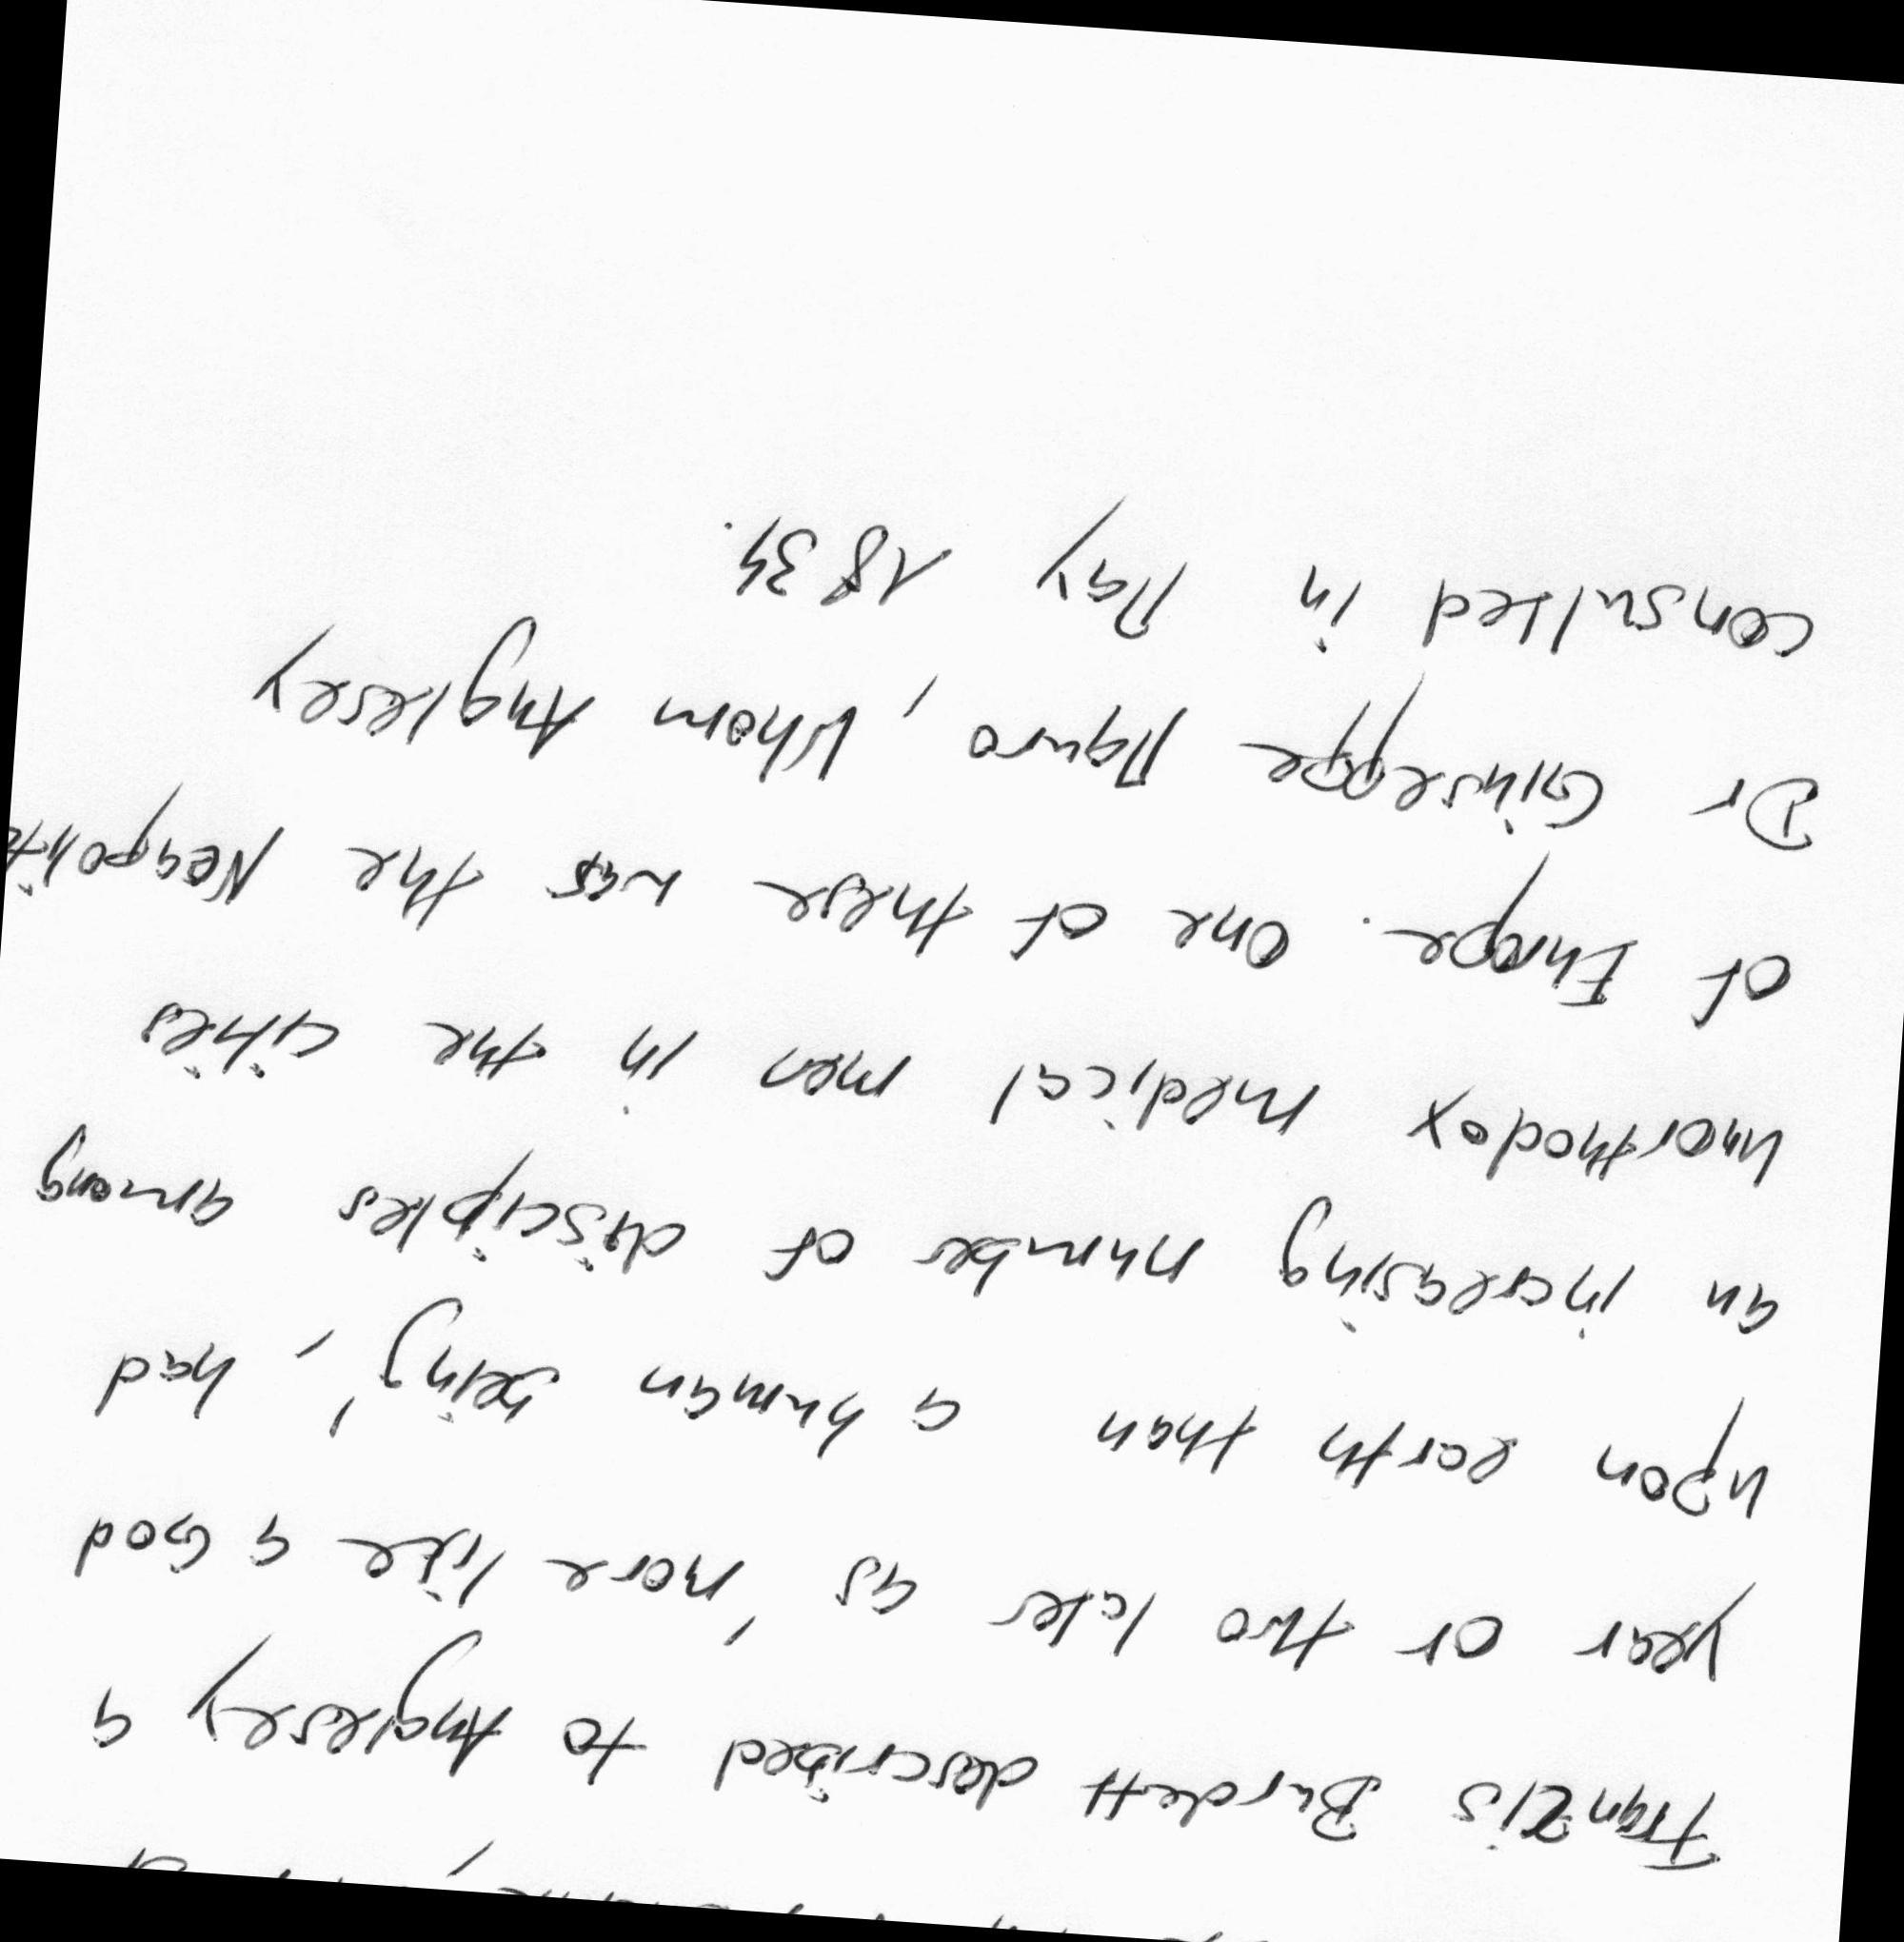 Franzis Burdett described to Anglesey a
year or two later as 'more like a God
upon earth than a human being', had
an increasing number of disciples among
unorthodox medical men in the cities
of Europe. One of these was the
Dr Giuseppe Mauro, whom Anglesey
consulted in May 1834.